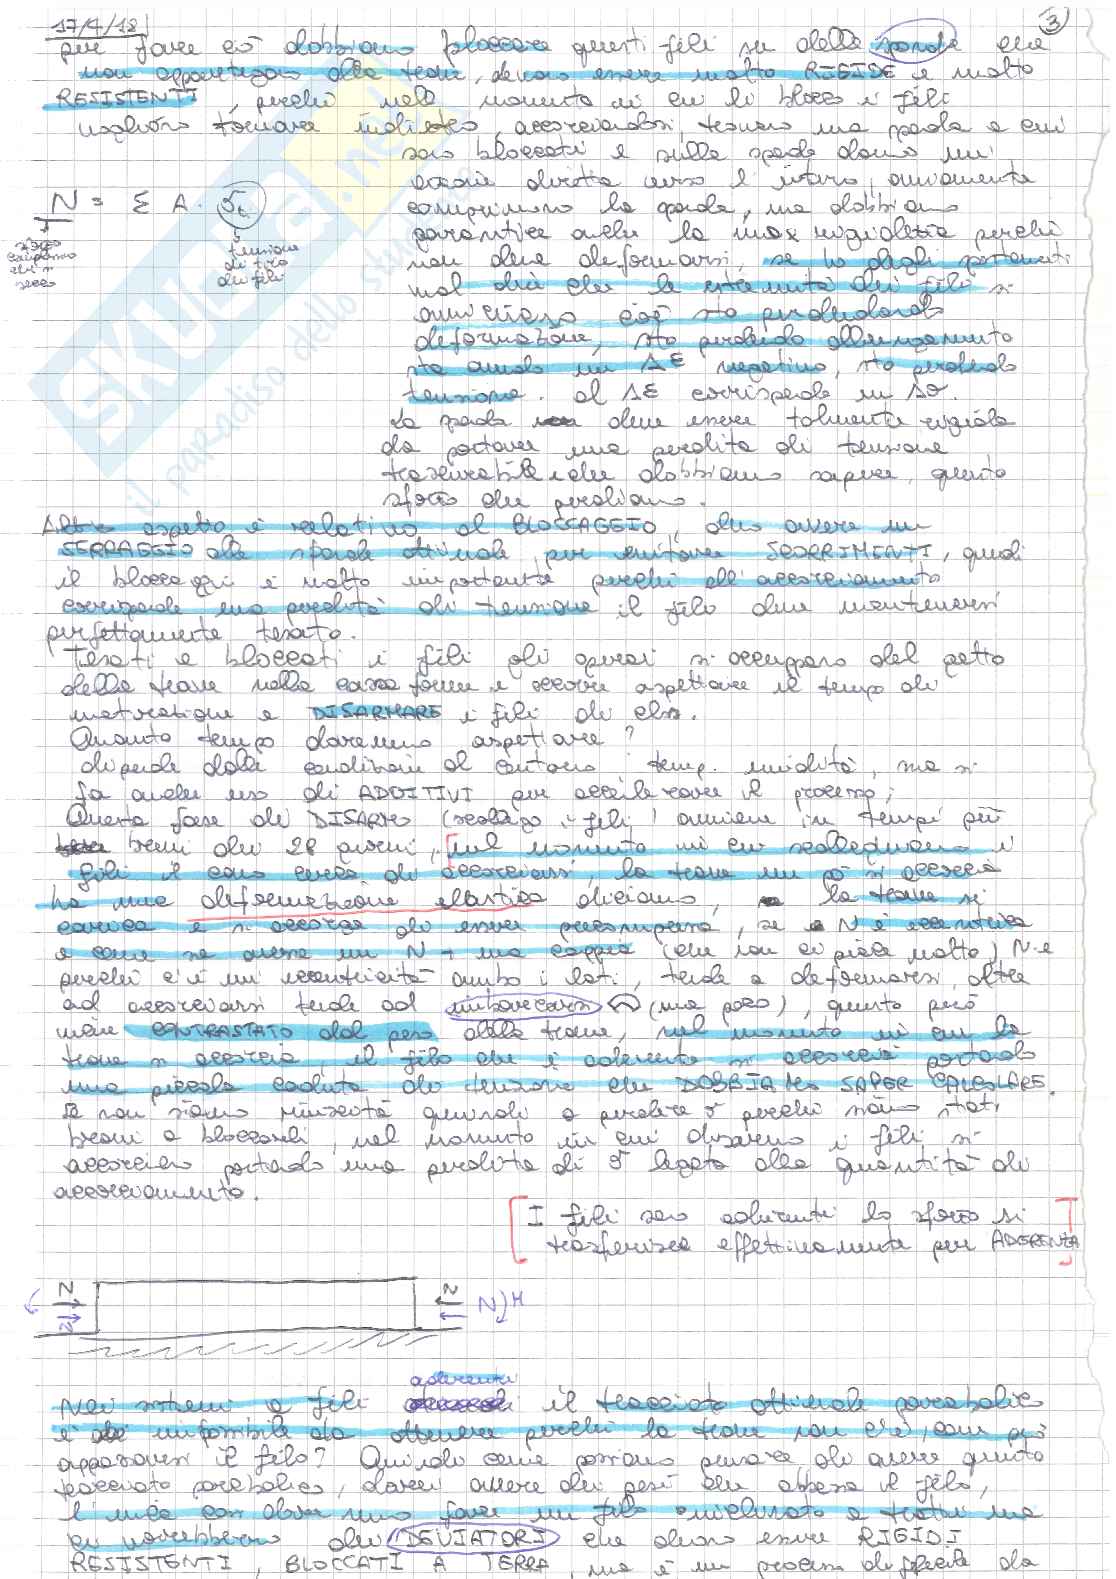 17/4/18
3
per fare ciò dobbiamo bloccare questi fili su delle sponde che
non appartengono alla trave, devono essere molto RIGIDE e molto
RESISTENTI, perché nel momento in cui li blocco i fili
vogliono tornare indietro, accorciandosi, trovano una sponda a cui
sono bloccati e sulle sponde danno un'
azione diretta verso l'interno, ovviamente
comprimono la sponda, ma dobbiamo
garantire anche la max rigidezza perché
non deve deformarsi, se ho degli spostamenti
vuol dire che le estremità dei fili si
avvicinano cioè sto perdendo
deformazione, sto perdendo allungamento
sto avendo un Δε negativo, sto perdendo
tensione. al Δε corrisponde un Δσ.
N = Σ A · σt
sforzo
tensione
di tiro
dei fili
La sponda deve essere talmente rigida
da portare una perdita di tensione
trascurabile e che dobbiamo sapere, questo
sforzo che perdiamo.
Altro aspetto è relativo al BLOCCAGGIO, devo avere un
SERRAGGIO alle sponde ottimale per evitare SCORRIMENTI, quindi
il bloccaggio è molto importante perché all'accorciamento
corrisponde una perdita di tensione il filo deve mantenersi
perfettamente tesato.
Tesati e bloccati i fili gli operai si occupano del getto
della trave nella cassaforma e occorre aspettare il tempo di
maturazione e DISARMARE i fili di cls.
Quanto tempo dovremmo aspettare?
dipende dalle condizioni al contorno temp. umidità, ma si
fa anche uso di ADDITIVI per accelerare il processo;
Questa fase di DISARMO (sciolgo i fili) avviene in tempi più
brevi dei 28 giorni, [nel momento in cui scolleghiamo i
fili il cavo cerca di accorciarsi, la trave un pò si accorcia
ha una deformazione elastica diciamo, la trave si
carica e si accorge di esser precompressa, se N è eccentrica
è come se avesse un N + una coppia (che non ci piace molto) N e
perché c'è un'eccentricità ambo i lati, tende a deformarsi, oltre
ad accorciarsi tende ad inarcarsi (ma poco), questo però
viene CONTRASTATO dal peso della trave, nel momento in cui la
trave si accorcia, il filo che è aderente si accorcia portando
una piccola caduta di tensione che DOBBIAMO SAPER CALCOLARE.
Se non siamo riusciti quindi a perdere σ perché siamo stati
bravi a bloccarli, nel momento in cui disarmo i fili si
accorciano portando una perdita di σ legata alla quantità di
accorciamento.
[I fili sono aderenti lo sforzo si]
[trasferisce effettivamente per ADERENZA]
N
N
N
N
M
aderenti
Nei sistemi a fili il tracciato ottimale parabolico
è impossibile da ottenere perché la trave non c'è, come può
appoggiarsi il filo? Quindi come possiamo pensare di avere questo
tracciato parabolico, dovrei avere dei pesi che abbassa il filo,
l'unica cosa fare un filo inclinato a tratti ma
ci vorrebbero dei DEVIATORI che devono essere RIGIDI
RESISTENTI, BLOCCATI A TERRA, ma è un processo difficile da
SKUOLA.net
il paradiso dello studente